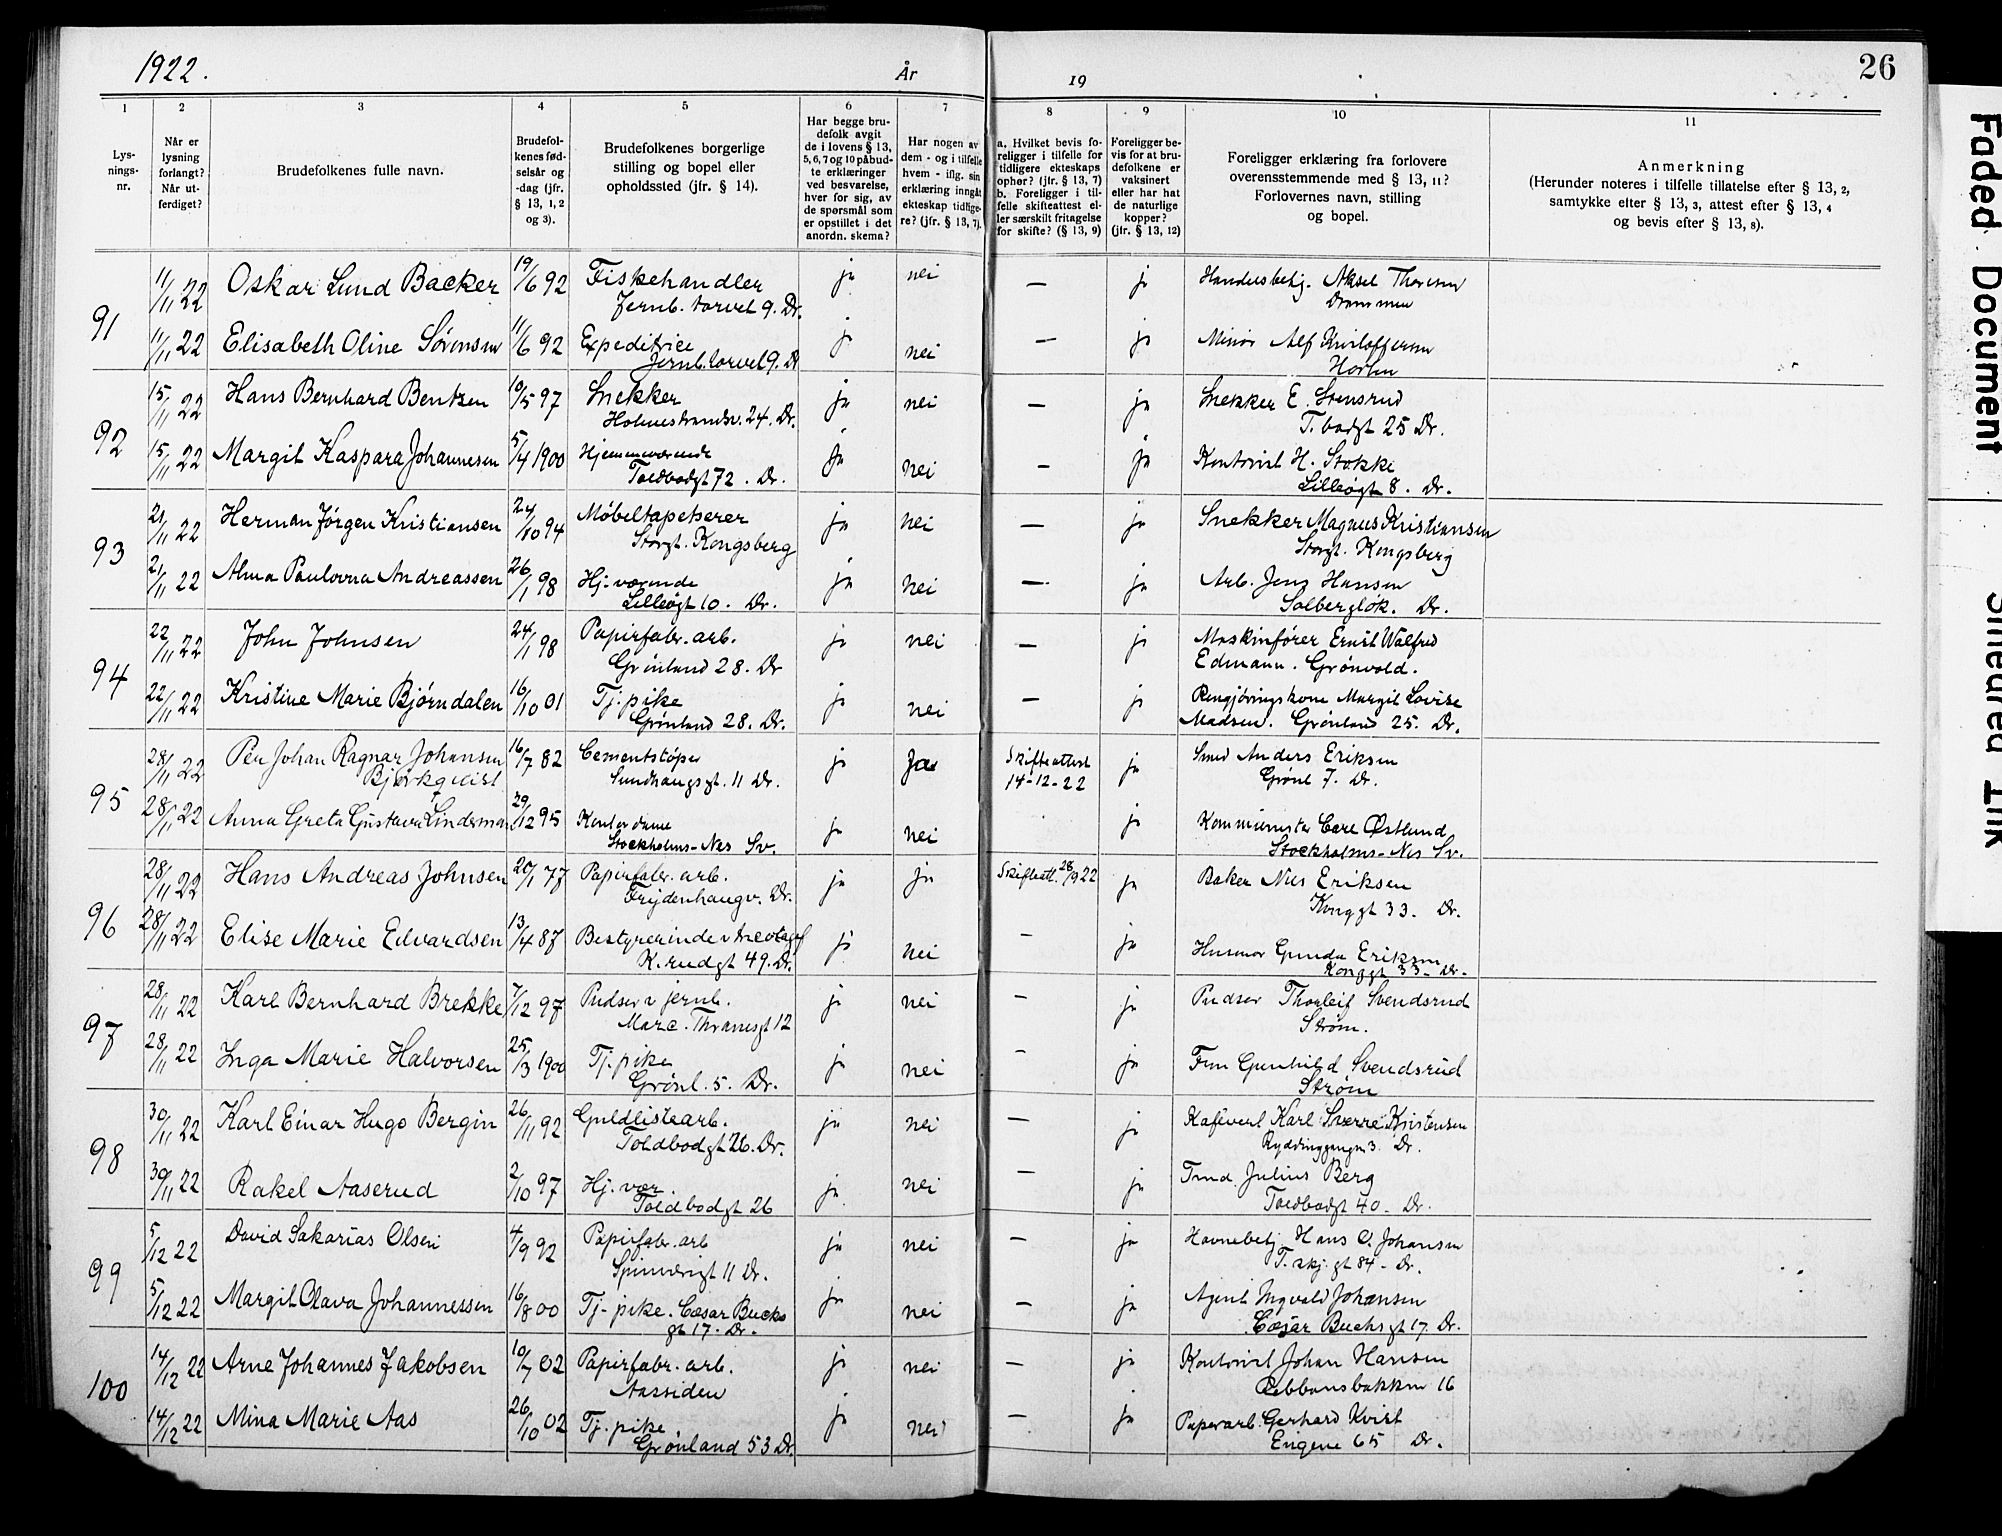 1922. År 19 26
1 2 3 4 5 6 7 8 9 10 11
Lys-
nings-
nr.
Når er
lysning
forlangt?
Når ut-
ferdiget?
Brudefolkenes fulle navn.
Brudefol-
kenes fød-
selsår og
-dag (jfr.
§ 13, 1, 2
og 3).
Brudefolkenes borgerlige
stilling og bopel eller
opholdssted (jfr. § 14).
Har begge bru-
defolk avgit
de i lovens § 13,
5, 6, 7 og 10 påbud-
te erklæringer
ved besvarelse,
hver for sig, av
de spørsmål som
er opstillet i det
anordn. skema?
Har nogen av
dem - og i tilfelle
hvem - iflg. sin
erklæring inngåt
ekteskap tidlige-
re? (jfr. § 13, 7).
a. Hvilket bevis fo-
religger i tilfelle for
tidligere ekteskaps
ophør? (jfr. § 13, 7)
b. Foreligger i til-
felle skifteattest el-
ler særskilt fritagelse
for skifte? (§ 13, 9)
Foreligger be-
vis for at bru-
defolkene er
vaksinert
eller har hat
de naturlige
kopper?
(jfr. § 13, 12)
Foreligger erklæring fra forlovere
overensstemmende med § 13, 11?
Forlovernes navn, stilling
og bopel.
Anmerkning
(Herunder noteres i tilfelle tillatelse efter § 13, 2,
samtykke efter § 13, 3, attest efter § 13, 4
og bevis efter § 13, 8).
91
11/11 22 Oskar Lund Backer 19/6 92 Fiskehandler ja nei — ja Handelsbetj. Aksel Thoresen
Jernb. torvet 9. Dr. Drammen
11/11 22 Elisabeth Oline Sørensen 11/6 92 Expeditrice ja nei — ja Minør Alf
Jernb. torvet 9. Dr Horten
92
15/11 22 Hans Bernhard Bentzen 10/5 97 Snekker ja nei — ja Snekker E. Stensrud
Holmestrandsv. 24. Dr. T. bodgt 25 Dr.
15/11 22 Margit Kaspara Johannesen 5/4 1900 Hjemmeværende ja nei — ja Kontorist H. Stokke
Toldbodgt 72. Dr. Lilleøgt 8. Dr.
93
21/11 22 Herman Jørgen Kristiansen 24/10 94 Møbeltapetserer ja nei — ja Snekker Magnus Kristiansen
Storgt. Kongsberg Storgt. Kongsberg
21/11 22 Alma Paulovna Andreassen 26/1 98 Hj. værende ja nei — ja Arb. Jens Hansen
Lilleøgt 10. Dr. Solbergløk. Dr.
94
22/11 22 John Johnsen 24/1 98 Papirfabr. arb. ja nei — ja Maskinfører Ernst Walfred
Grønland 28. Dr Edmann. Grønvold.
22/11 22 Kristine Marie Bjørndalen 16/10 01 Tj. pike ja nei — ja Rengjøringskone Margit Lovise
Grønland 28. Dr. Madsen. Grønland 25. Dr.
95
28/11 22 Per Johan Ragnar Johansen 16/7 82 Cementstøper ja Ja Skifteattest ja Smed Anders Eriksen
Bjørkqvist Sundhaugsgt. 11 Dr. 14-12-22 Grønl 7. Dr.
28/11 22 Anna Greta Gustava Lindeman 29/12 95 Kontordame ja nei ja Kommiunister Carl Østlund
Stockholms-Nes Sv. Stockholms-Nes Sv.
96
28/11 22 Hans Andreas Johnsen 20/1 77 Papirfabr. arb. ja ja Skifteatt. 28/9 22 ja Baker Nils Eriksen
Frydenhaugv. Dr. Konggt 33. Dr.
28/11 22 Elise Marie Edvardsen 13/4 87 Bestyrerinde v ja nei — ja Husmor Gunda Eriksen
K. rudgt 49. Dr. Konggt 33. Dr.
97
28/11 22 Karl Bernhard Brekke 7/12 97 Pudser v jernb. ja nei — ja Pudser Thorleif Svendsrud
Marc. Thranesgt 12 Strøm.
28/11 22 Inga Marie Halvorsen 25/3 1900 Tj. pike ja nei — ja Fru Gunhild Svendsrud
Grønl. 5. Dr. Strøm
98
30/11 22 Karl Einar Hugo Bergin 26/11 92 Guldlistearb. ja nei — ja Kafévert Karl Sverre Kristensen
Toldbodgt 26. Dr. 3. Dr.
30/11 22 Rakel Aaserud 2/10 97 Hj. vær. ja nei — ja Tmd. Julius Berg
Toldbodgt 26 Toldbodgt 40. Dr.
99
5/12 22 David Sakarias Olsen 4/9 92 Papirfabr. arb ja nei — ja Havnebetj. Hans O. Johansen
Spinnerigt 11 Dr. T. skj. gt 84. Dr.
5/12 22 Margit Olava Johannessen 16/8 00 Tj. pike. Cæsar Bucks ja nei — ja Agent Ingvald Johansen
gt 17. Dr. Cæsar Buchsgt 17. Dr.
100
14/12 22 Arne Johannes Jakobsen 10/7 02 Papirfabr. arb. ja nei — ja Kontorist Johan Hansen
Aassiden Rebbansbakken 16
14/12 22 Mina Marie Aas 26/10 02 Tj. pike ja nei — ja Papirarb. Gerhard Kvist
Grønland 53 Dr. Engene 65 Dr.
Faded Document
Smeared Ink